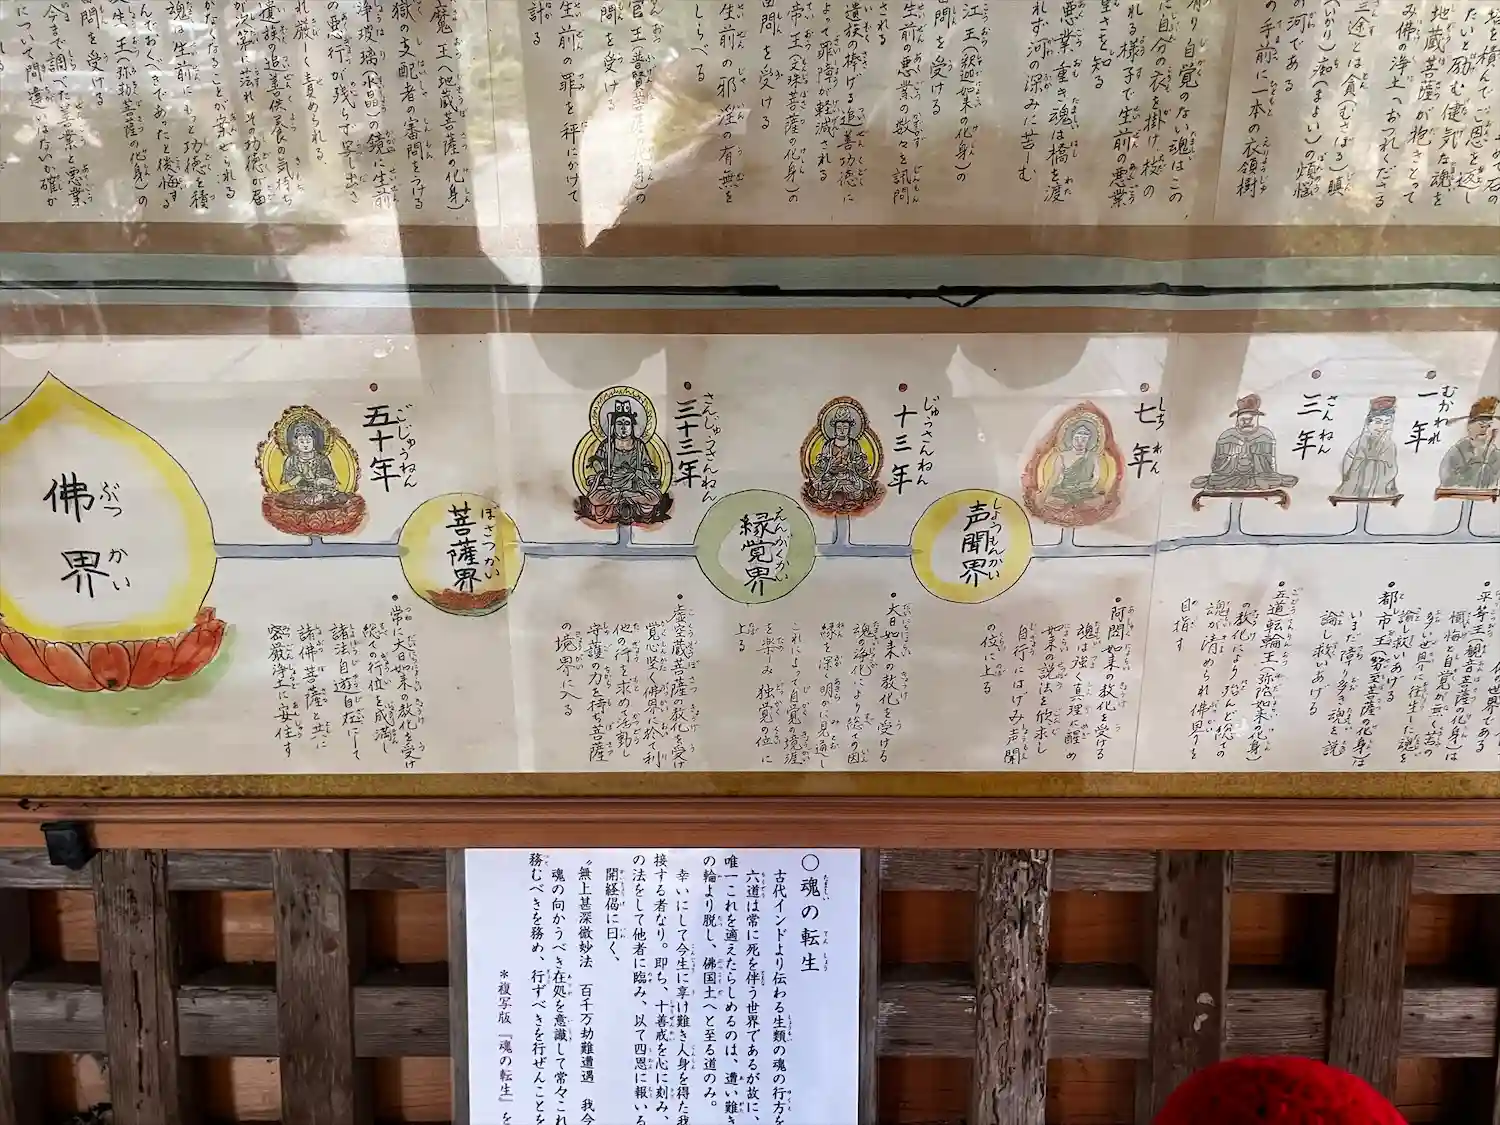 を積んでご恩を返し
たいと励む健気な魂を
地蔵菩薩が抱きとって
み佛の浄土へおつれくださる
三途とは貪(むさぼる)瞋
(いかり)痴(まよい)の煩悩
の河である
の手前に一本の衣領樹
有り自覚のない魂はこの
に自分の衣を掛け、枝の
れる様子で生前の悪業
重さを知る
悪業重き魂は橋を渡
れず河の深みに苦しむ
江王(釈迦如来の化身)の
問を受ける
生前の悪業の数々を訊問
される
遺族の捧げる追善功徳に
よって罪障が軽減される
帝王(文殊菩薩の化身)の
問を受ける
生前の邪淫の有無を
しらべる
官王(普賢菩薩化身)の
問を受ける
生前の罪を秤にかけて
計る
魔王(地蔵菩薩の化身)
獄の支配者の審問をうける
浄玻璃(水晶)の鏡に生前
の悪行が残らず写し出さ
れ厳しく責められる。
遺族の追善供養の気持ち
が次第に薄れその功徳が届
かなくなることが案ぜられる
魂は生前にもっと功徳を積
んでおくべきであったと後悔する
王(弥勒菩薩の化身)の
問を受ける
今まで調べた善業と悪業
について間違いはないか確か
一年
むかわれ
三年
さんねん
七年
しちねん
十三年
じゅうさんねん
三十三年
さんじゅうさんねん
五十年
ごじゅうねん
声聞界
しょうもんかい
縁覚界
えんがくかい
菩薩界
ぼさつかい
佛界
ぶつかい
平等王(観音菩薩の化身)は
慚悔と自覚が無く苦の
多い世界に往生した魂を
諭し救いあげる
都市王(勢至菩薩の化身)は
いまだ障り多き魂を説
諭し救いあげる
五道転輪王(弥陀如来の化身)
の教化により殆んど総ての
魂が清められ佛界を
目指す
阿閦如来の教化を受ける
魂は強く真理に醒め
如来の説法を欣求し
自行にはげみ声聞
の位に上る
大日如来の教化を受ける
魂の浄化により総ての因
縁を深く明かに見通し
これによって自覚の境涯
を楽み独覚の位に
上る
虚空蔵菩薩の教化を受け
覚心堅く佛界に於て利
他の行を求め活動し
守護の力を持ち菩薩
の境界に入る
常に大日如来の教化を受け
総ての行位を成満し
諸法自遊自在にして
諸佛菩薩と共に
密厳浄土に安住す
〇魂の転生
古代インドより伝わる生類の魂の行方を
六道は常に死を伴う世界であるが故に、
唯一これを適えたらしめるのは、遭い難き
の輪より脱し、佛国土へと至る道のみ。
幸いにして今生に享け難き人身を得た我
接する者なり。即ち、十善戒を心に刻み、
の法をして他者に臨み、以て四恩に報いる
開経偈に曰く、
〝無上甚深微妙法 百千万劫難遭遇 我今
魂の向かうべき在処を意識して常々これ
務むべきを務め、行ずべきを行ぜんことを
*複写版『魂の転生』を